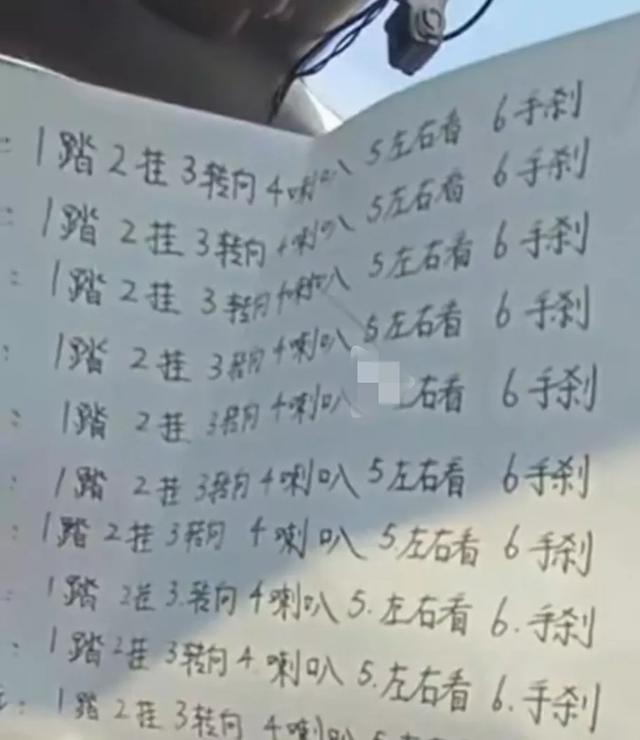 : 1踏 2挂 3转向 4喇叭 5左右看 6手刹
: 1踏 2挂 3转向 4喇叭 5左右看 6手刹
: 1踏 2挂 3转向 4喇叭 5左右看 6手刹
: 1踏 2挂 3转向 4喇叭 5左右看 6手刹
: 1踏 2挂 3转向 4喇叭 左右看 6手刹
: 1踏 2挂 3转向 4喇叭 5左右看 6手刹
: 1踏 2挂 3转向 4喇叭 5左右看 6手刹
: 1踏 2挂 3.转向 4喇叭 5.左右看 6.手刹
: 1踏 2挂 3转向 4.喇叭 5.左右看 6.手刹
: 1踏 2挂 3转向 4喇叭 5左右看